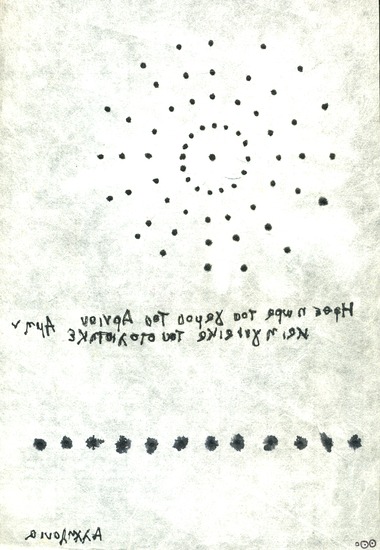 Ηρθε η ωρα του γαμου του Αρνιου
και η γυναικα του στολιστηκε Αμην
Αλληλουια